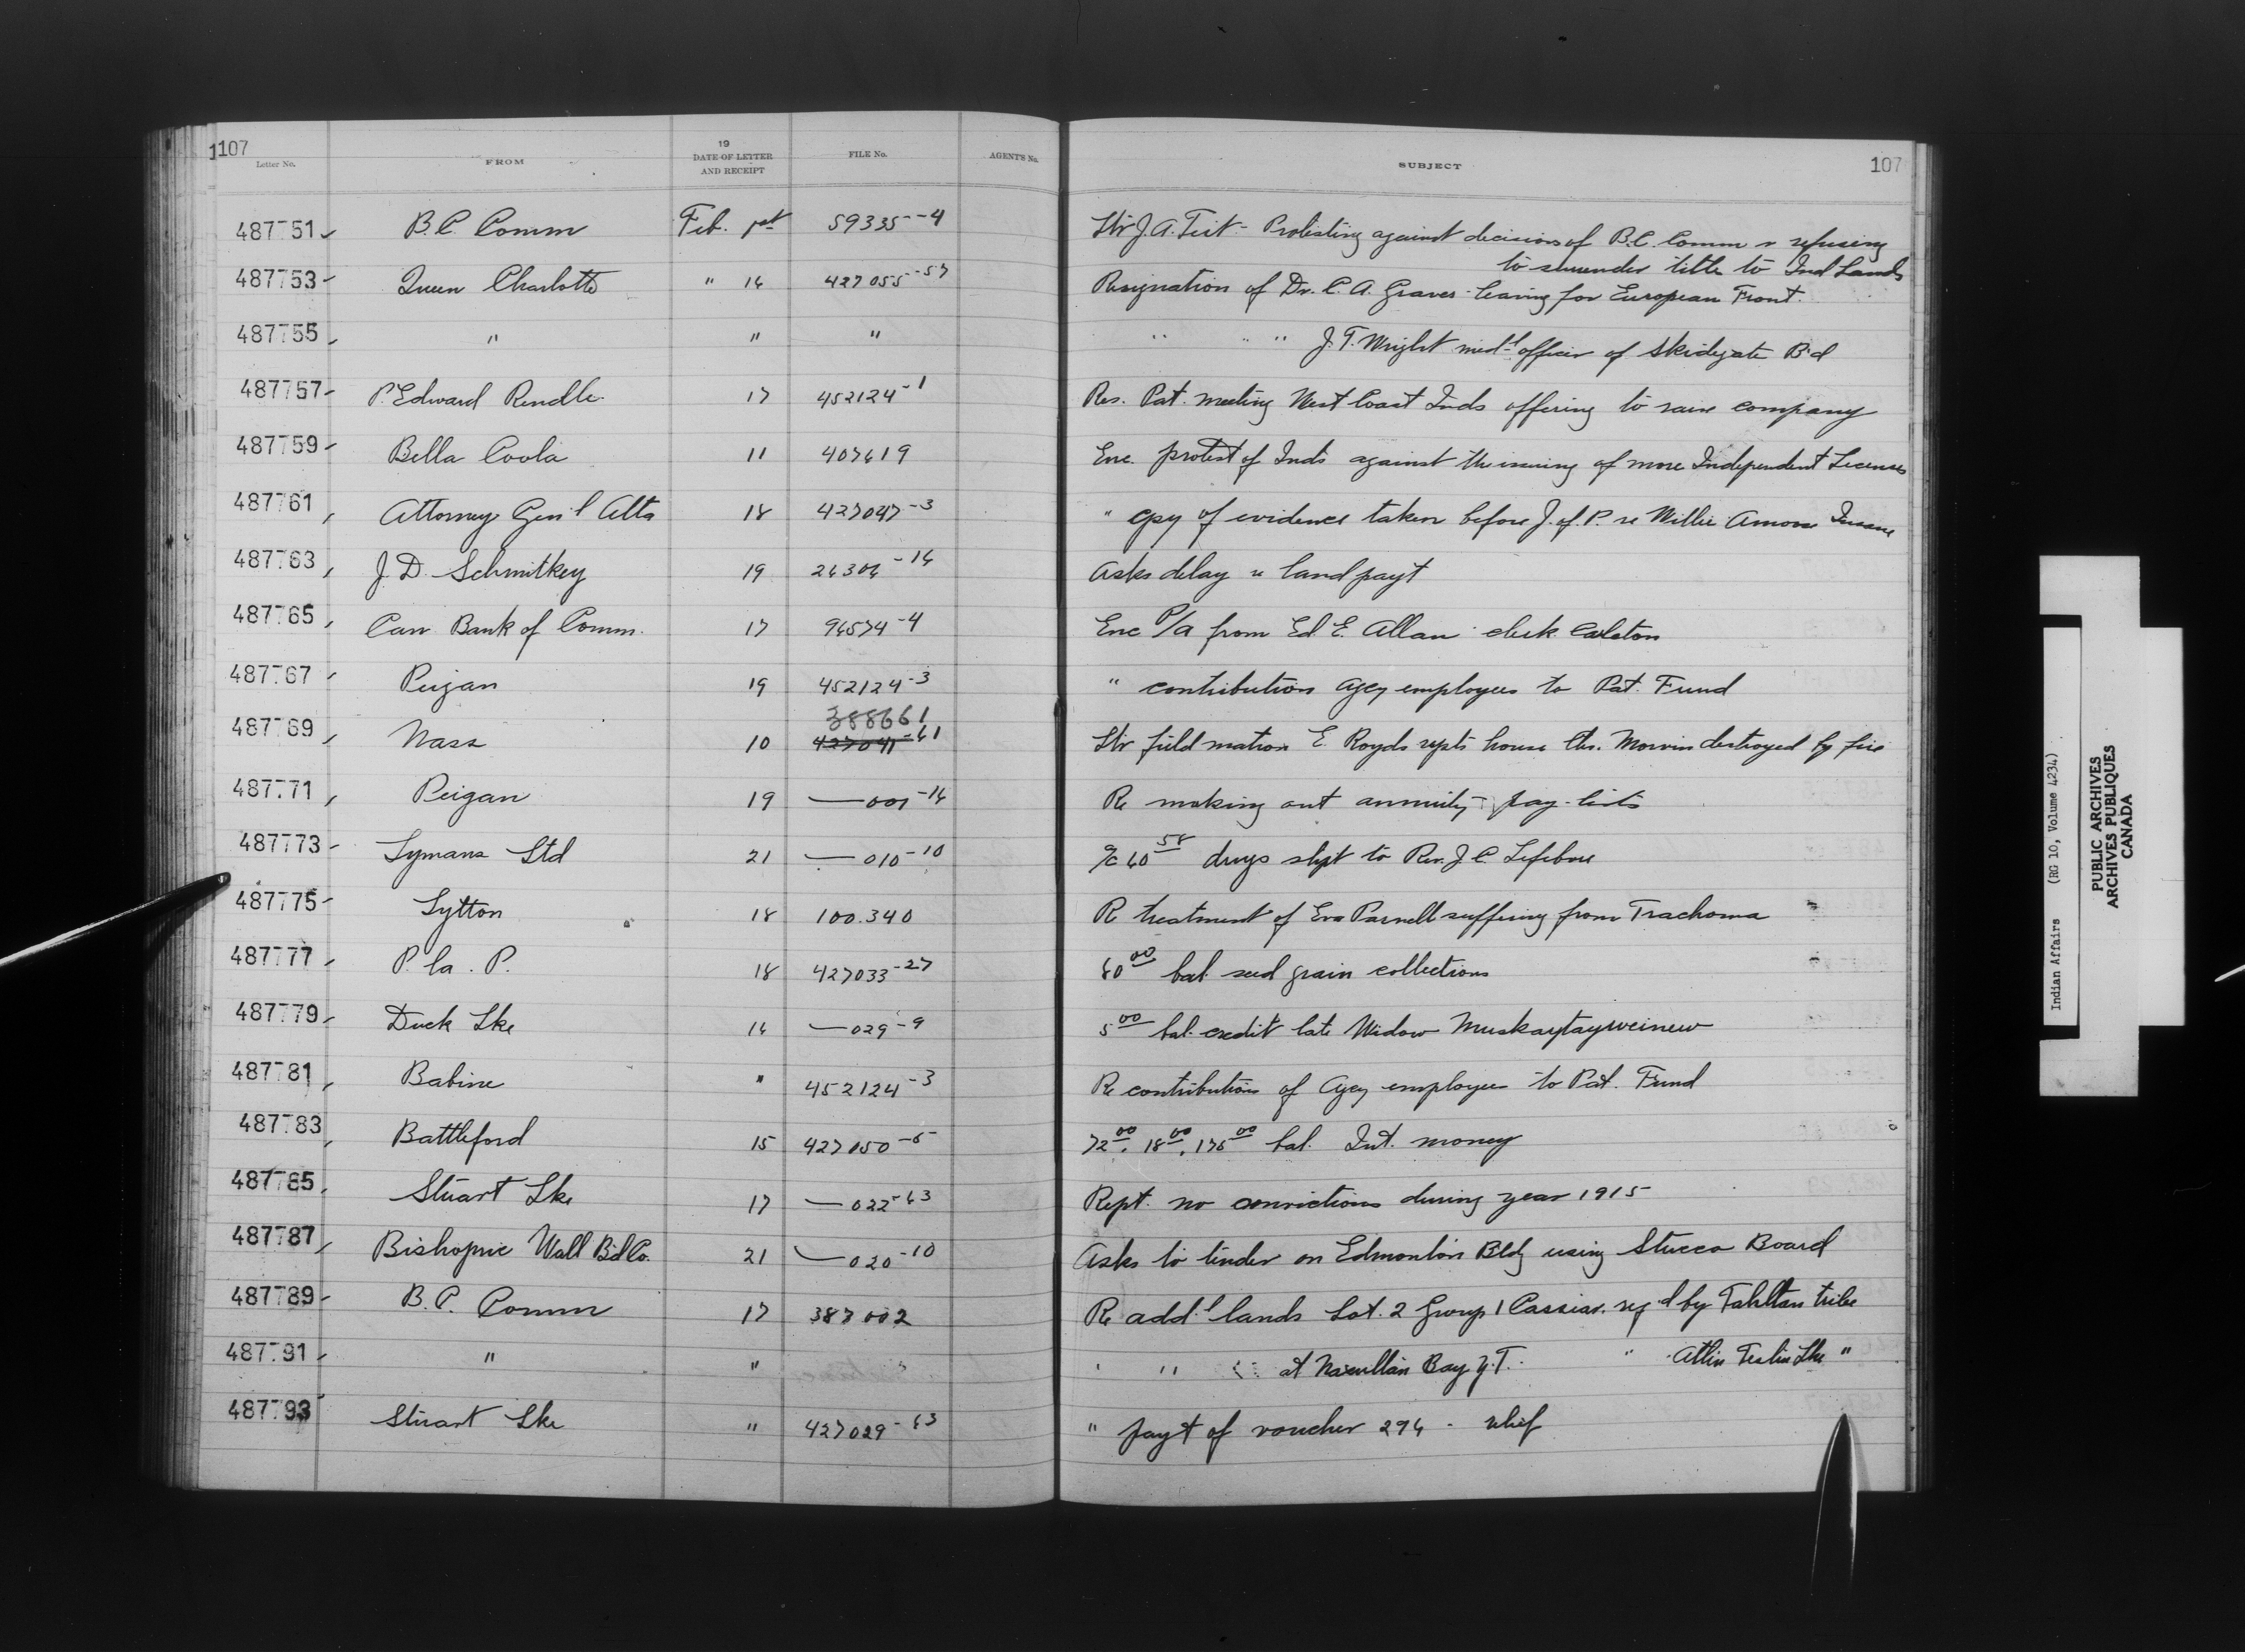 1107 107
Letter No. FROM 19 DATE OF LETTER AND RECEIPT FILE No. AGENT'S No. SUBJECT
487751 B.C. Comm Feb. 1st 59335-4 Ltr J.A. Teit - Protesting against decision of B.C. Comm r refusing
to surrender title to Ind Lands
487753 Queen Charlotte " 16 427055-57 Resignation of Dr. C.A. Graves leaving for European Front.
487755 " " " " " J.T. Wright med'l officer of Skidegate B'd
487757 P. Edward Rendle 17 452124-1 Res. Pat. meeting West Coast Inds offering to raise company
487759 Bella Coola 11 407619 Enc. protest of Inds against the issuing of more Independent Licenses
487761 Attorney Gen'l Alta 18 427047-3 " cpy of evidence taken before J. of P. re Willie Amoss Insane
487763 J.D. Schmitkey 19 26306-16 Asks delay re land payt
487765 Can Bank of Comm. 17 96574-4 Enc P/A from Ed E. Allan clerk Carleton
487767 Peigan 19 452124-3 " contributions agcy employees to Pat. Fund
388661
487769 Nass 10 427041-61 Ltr field matron E. Royds repts house Chs. Morvin destroyed by fire
487771 Peigan 19 — 001-16 Re making out annuity pay-lists
487773 Lymans Ltd 21 — 010-10 a/c 60 58 drugs shpt to Rev. J.C. Lefebvre
487775 Lytton 18 100.340 Re treatment of Eva Parnell suffering from Trachoma
487777 P. la. P. 18 427033-27 60 00 bal. seed grain collections
487779 Duck Lke 16 — 029-9 5 00 bal. credit late Widow Muskaytayweinew
487781 Babine " 452124-3 Re contributions of Agcy employees to Pat. Fund
487783 Battleford 15 427050-5 72 00, 18 00, 175 00 bal. Int. money
487785 Stuart Lke 17 — 022-63 Rept. no convictions during year 1915
487787 Bishopric Wall B'd Co. 21 — 020-10 Asks to tender on Edmonton Bldg using Stucco Board
487789 B.C. Comm 17 387002 Re add'l lands Lot. 2 Group 1 Cassiar. req'd by Tahltan tribe
487791 " " " " at Bay Y.T. " Atlin Teslin Lke "
487793 Stuart Lke " 427029-63 " payt of voucher 296 - relief
Indian Affairs (RG 10, Volume 4234)
PUBLIC ARCHIVES
ARCHIVES PUBLIQUES
CANADA